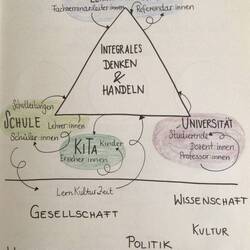 Fachseminarleiter:innen
Referendar:innen
INTEGRALES
DENKEN
&
HANDELN
Schulleitungen
SCHULE
Lehrer:innen
Schüler:innen
KITA
Kinder
Erzieher:innen
UNIVERSITÄT
Studierende
Dozent:innen
Professor:innen
LernKulturZeit
GESELLSCHAFT
WISSENSCHAFT
KULTUR
POLITIK